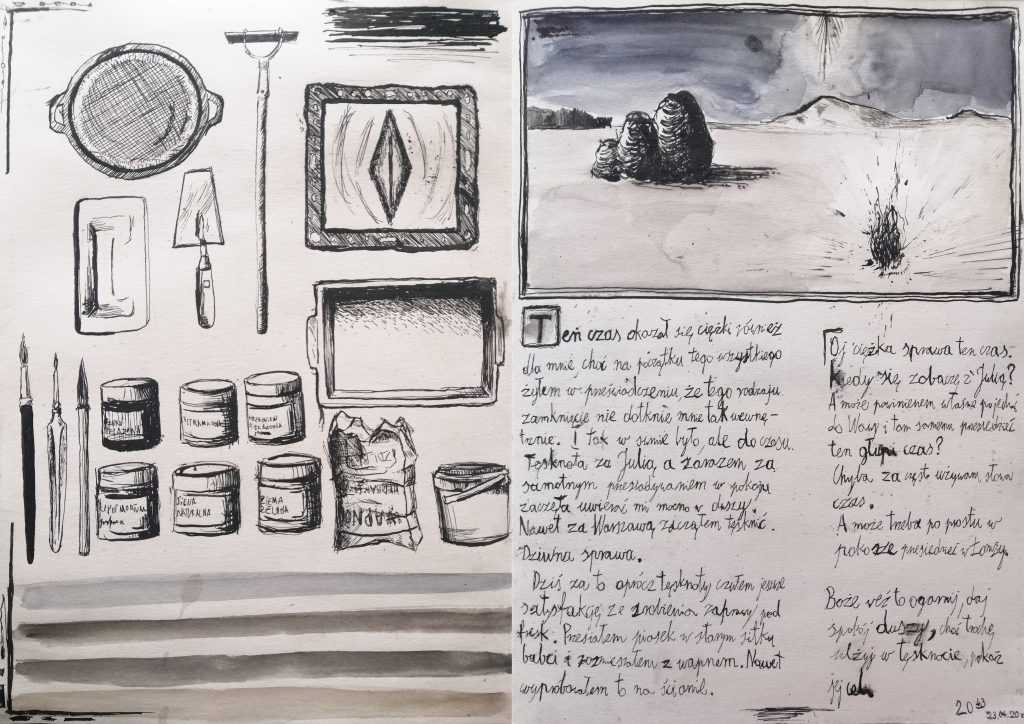 CZERŃ
ŻELAZOWA
ULTRAMARYNA
CZERWIEŃ
ŻELAZOWA
CAPUT MORTUUM
SIENA
NATURALNA
ZIEMA
ZIELONA
WAPNO
Teń czas okazał się ciężki również
dla mnie choć na początku tego wszystkiego
żyłem w przeświadczeniu, że tego rodzaju
zamknięcie nie dotknie mnie tak wewnę-
trznie. I tak w sumie było, ale do czasu.
Tęsknota za Julią, a zarazem za
samotnym przesiadywaniem w pokoju
zaczęła uwierać mi mocno w duszy.
Nawet za Warszawą zacząłem tęsknić.
Dziwna sprawa.
Dziś za to oprócz tęsknoty czułem jeszcze
satysfakcję ze zrobienia zaprawy pod
fresk. Przesiałem piasek w starym sitku
babci i rozmieszałem z wapnem. Nawet
wypróbowałem to na ścianie.
Oj ciężka sprawa ten czas.
Kiedy się zobaczę z Julią?
A może powinienem właśnie pojechać
do Wawy i tam samemu przesiedzieć
ten głupi czas?
Chyba za często używam słowa
czas.
A może trzeba po prostu w
pokorze przesiedzieć w Łomży.
Boże weź to ogarnij, daj
spokój duszy, choć trochę
ulżyj w tęsknocie, pokaż
jej cel.
20:43
23.04.20